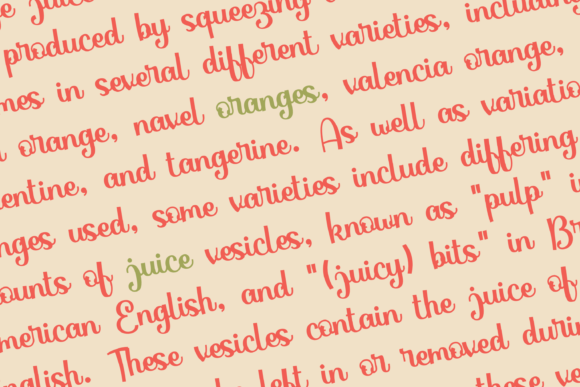 juice
produced by squeezing
mes in several different varieties, including
orange, navel oranges, valencia orange,
entine, and tangerine. As well as variatio
nges used, some varieties include differing
ounts of juice vesicles, known as "pulp" i
merican English, and "(juicy) bits" in Br
nglish. These vesicles contain the juice of
left in or removed duri
these ve